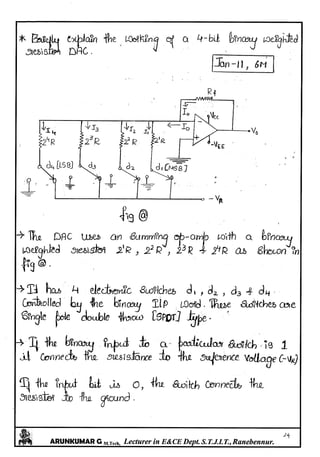 * Briefly explain the working of a 4-bit binary weighted
resistor DAC.
Jan-11, 6M
Rf
If
+Vcc
I4 I3 I2 I1 I0
Vo
-VEE
2⁴R 2³R 2²R 2¹R
d4 [LSB] d3 d2 d1 [MSB]
-VR
fig @
→ The DAC uses an summing op-amp with a binary
weighted resistor 2¹R, 2²R, 2³R & 2⁴R as shown in
fig @.
→ It has 4 electronic switches d1, d2, d3 & d4
Controlled by the binary I/P word. These switches are
Single pole double throw [SPDT] type.
→ If the binary input to a particular switch is 1
it connects the resistance to the reference voltage (-VR)
If the input bit is 0, the switch connects the
resistor to the ground.
ARUNKUMAR G M.Tech, Lecturer in E&CE Dept. S.T.J.I.T., Ranebennur.
24